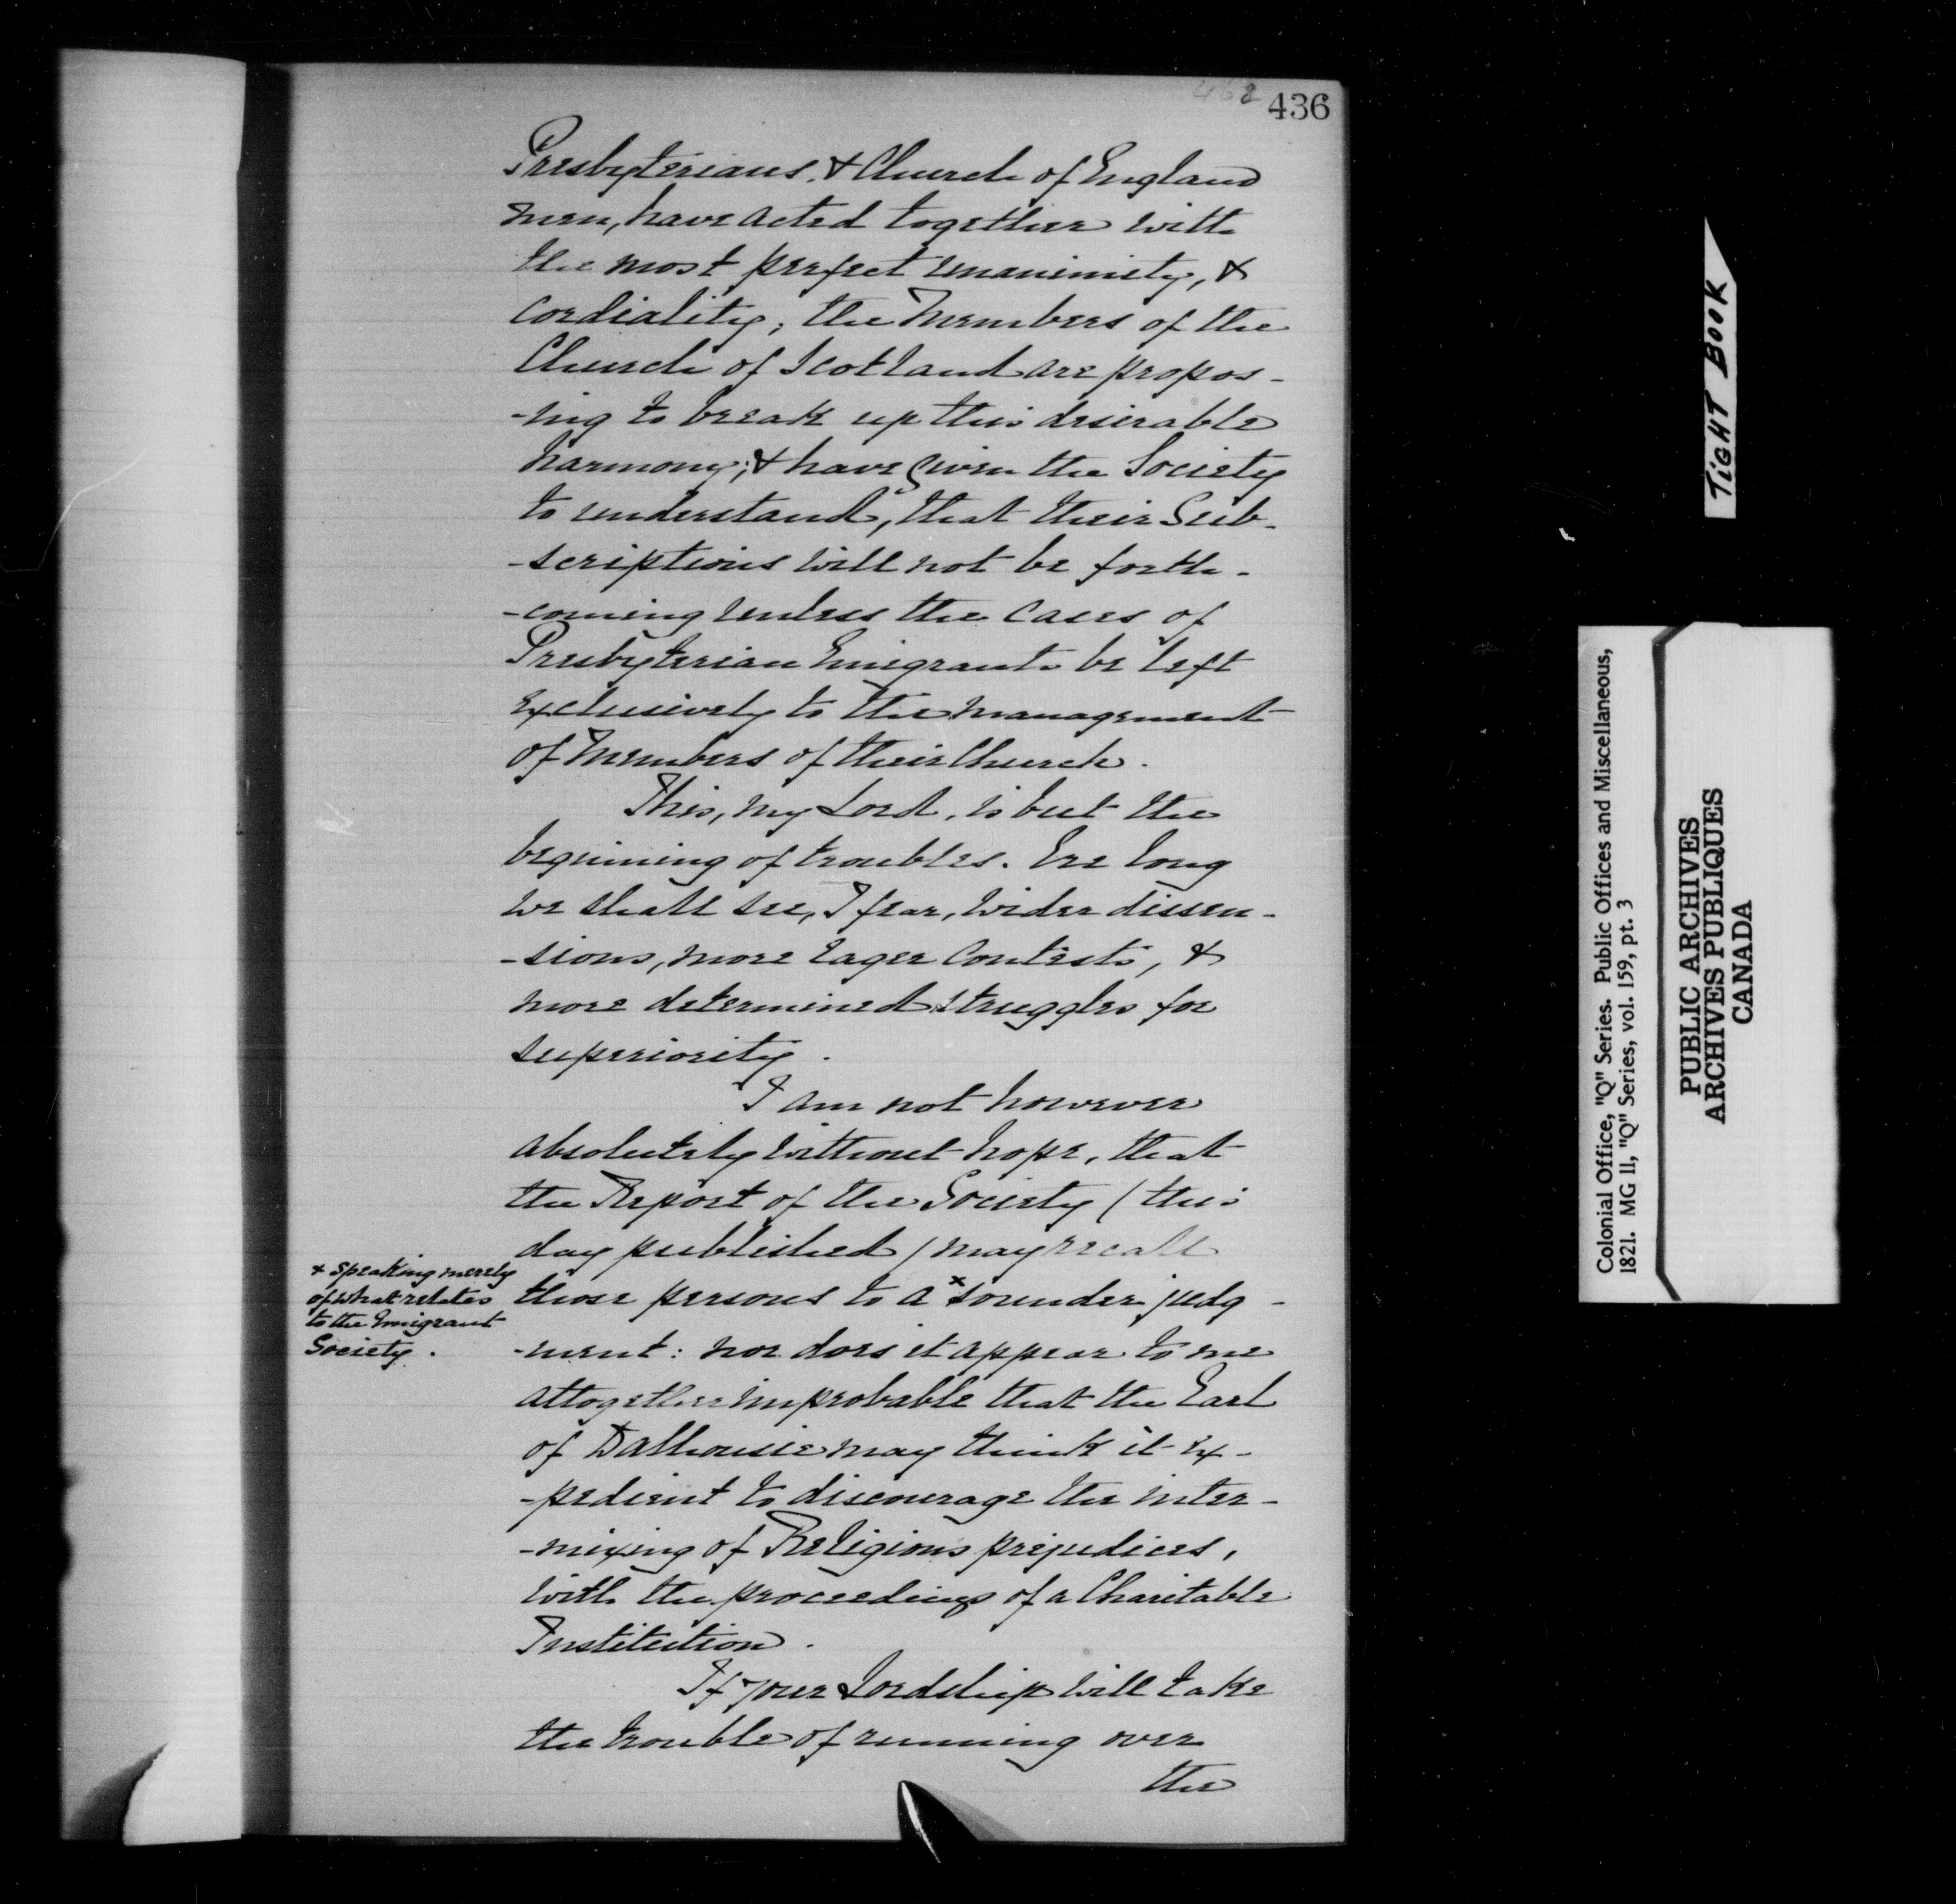 436
Presbyterians, & Church of England
men, have acted together with
the most perfect unanimity, &
cordiality; the Members of the
Church of Scotland are propos-
-ing to break up this desirable
harmony; & have given the Society
to understand, that their Sub-
-scriptions will not be forth-
-coming unless the cases of
Presbyterian Emigrants be left
exclusively to the management
of Members of their Church.
This, my Lord, is but the
beginning of troubles. Ere long
we shall see, I fear, wider dissen-
-sions, more eager contests, &
more determined struggles for
superiority.
I am not however
absolutely without hope, that
the Report of the Society (this
day published) may recall
those persons to a x sounder judg-
-ment: nor does it appear to me
altogether improbable that the Earl
of Dalhousie may think it ex-
-pedient to discourage the inter-
-mixing of Religious prejudices,
with the proceedings of a Charitable
Institution.
If your Lordship will take
the trouble of running over
the
x speaking merely
of what relates
to the Emigrant
Society.
TIGHT BOOK
Colonial Office, "Q" Series. Public Offices and Miscellaneous,
1821. MG 11, "Q" Series, vol. 159, pt. 3
PUBLIC ARCHIVES
ARCHIVES PUBLIQUES
CANADA